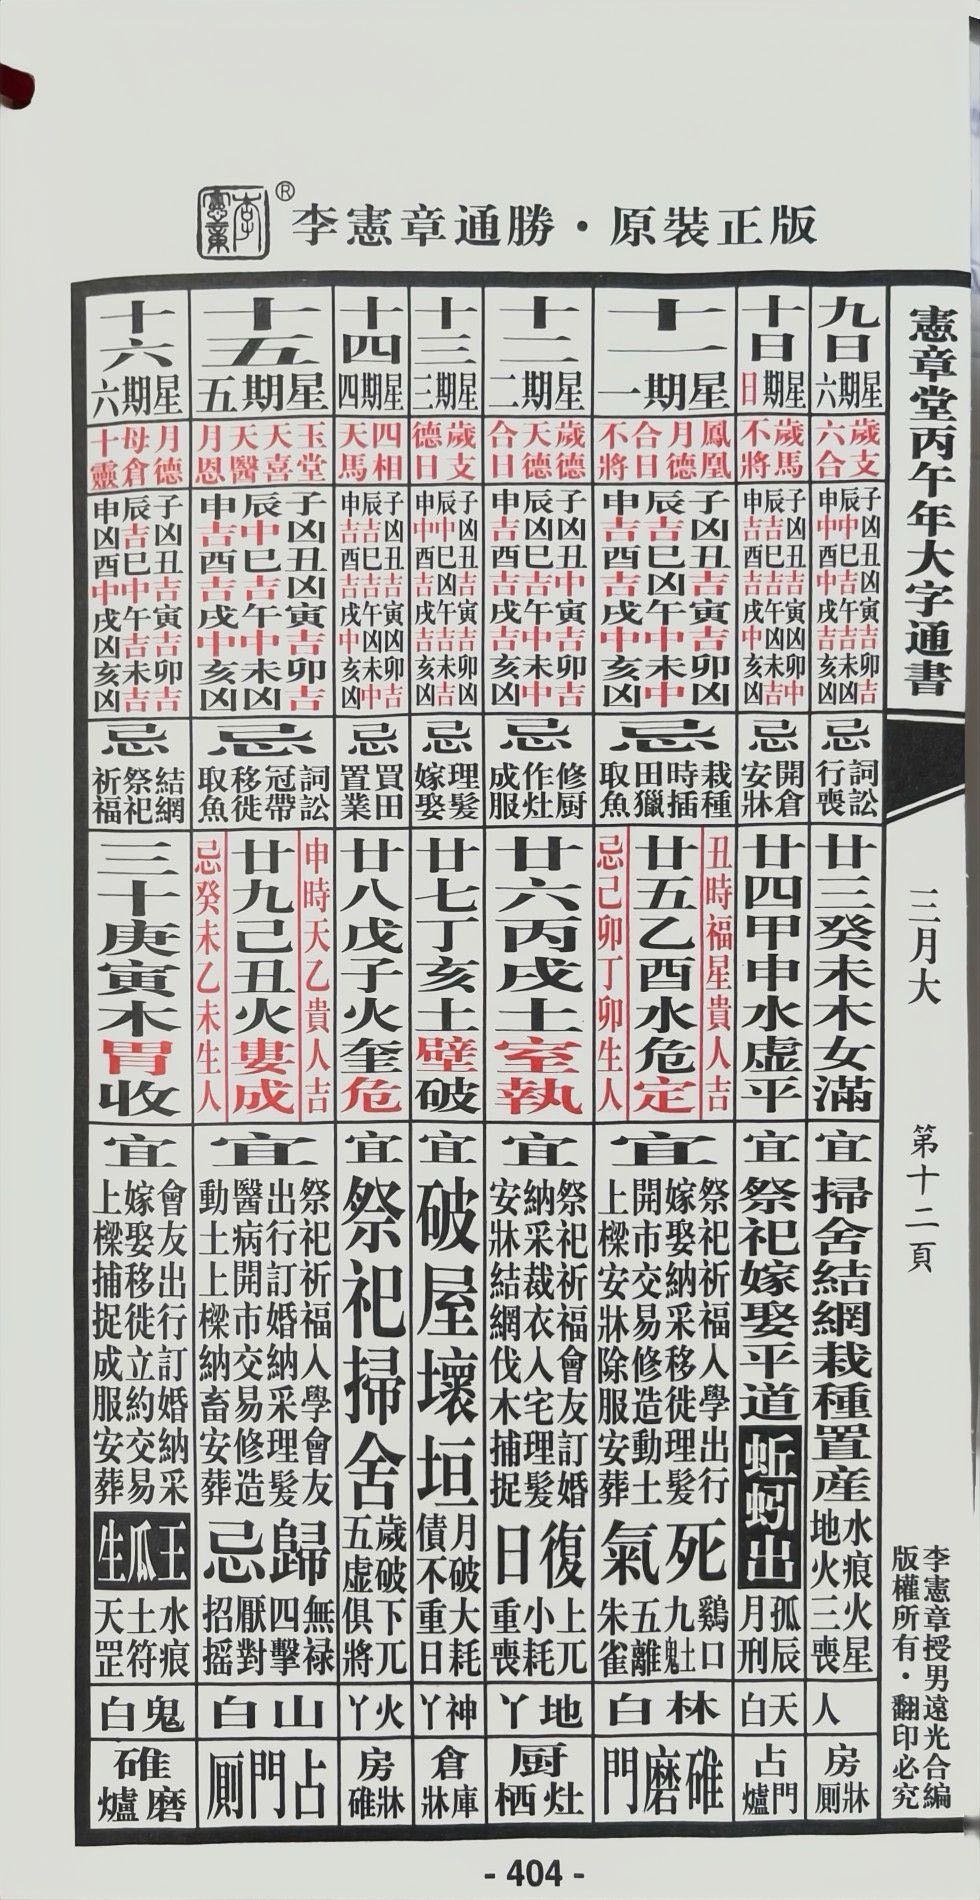 李憲章
®
李憲章通勝·原裝正版
憲章堂丙午年大字通書
三月大
第十二頁
李憲章授男遠光合編
版權所有·翻印必究
九日
星期六
歲支
六合
子凶丑凶寅吉卯吉
辰中巳吉午吉未凶
申中酉中戌吉亥吉
忌
詞訟
行喪
廿三癸未木女滿
宜
掃舍結網栽種置產
水痕火星
地火三喪
人
房牀
厠
十日
星期日
歲馬
不將
子凶丑吉寅凶卯中
辰吉巳吉午凶未吉
申吉酉吉戌中亥凶
忌
開倉
安牀
廿四甲申水虛平
宜
祭祀嫁娶平道
蚯蚓出
孤辰
月刑
天白
占門
爐
十一
星期一
鳳凰
月德
合日
不將
子凶丑吉寅吉卯凶
辰吉巳凶午中未中
申吉酉吉戌中亥凶
忌
栽種
時插
田獵
取魚
丑時福星貴人吉
廿五乙酉水危定
忌己卯丁卯生人
宜
祭祀祈福入學出行
嫁娶納采移徙理髮
開市交易修造動土
上樑安牀除服安葬
死氣
鷄口
九土鬼
五離
朱雀
林白
碓磨門
十二
星期二
歲德
天德
合日
子凶丑中寅吉卯吉
辰凶巳吉午中未中
申吉酉吉戌吉亥凶
忌
修厨
作灶
成服
廿六丙戌土室執
宜
祭祀祈福會友訂婚
納采裁衣入宅理髮
安牀結網伐木捕捉
復日
上兀
小耗
重喪
地丫
厨灶
栖
十三
星期三
歲支
德日
子凶丑吉寅吉卯吉
辰中巳凶午吉未吉
申中酉吉戌吉亥凶
忌
理髮
嫁娶
廿七丁亥土壁破
宜
破屋壞垣
月破大耗
債不重日
神丫
倉庫
牀
十四
星期四
四相
天馬
子凶丑吉寅凶卯吉
辰吉巳吉午凶未中
申吉酉吉戌中亥凶
忌
買田
置業
廿八戊子火奎危
宜
祭祀掃舍
歲破下兀
五虛俱將
火丫
房牀
碓
十五
星期五
玉堂
天喜
天醫
月恩
子凶丑凶寅吉卯吉
辰中巳吉午中未凶
申吉酉吉戌中亥凶
忌
詞訟
冠帶
移徙
取魚
申時天乙貴人吉
廿九己丑火婁成
忌癸未乙未生人
宜
祭祀祈福入學會友
出行訂婚納采理髮
醫病開市交易修造
動土上樑納畜安葬
歸忌
無祿
四擊
厭對
招摇
山白
占門厠
十六
星期六
月德
母倉
十靈
子凶丑吉寅吉卯吉
辰吉巳中午吉未吉
申凶酉中戌凶亥凶
忌
結網
祭祀
祈福
三十庚寅木胃收
宜
會友出行訂婚納采
嫁娶移徙立約交易
上樑捕捉成服安葬
王瓜生
水痕
土符
天罡
鬼白
碓磨
爐
- 404 -